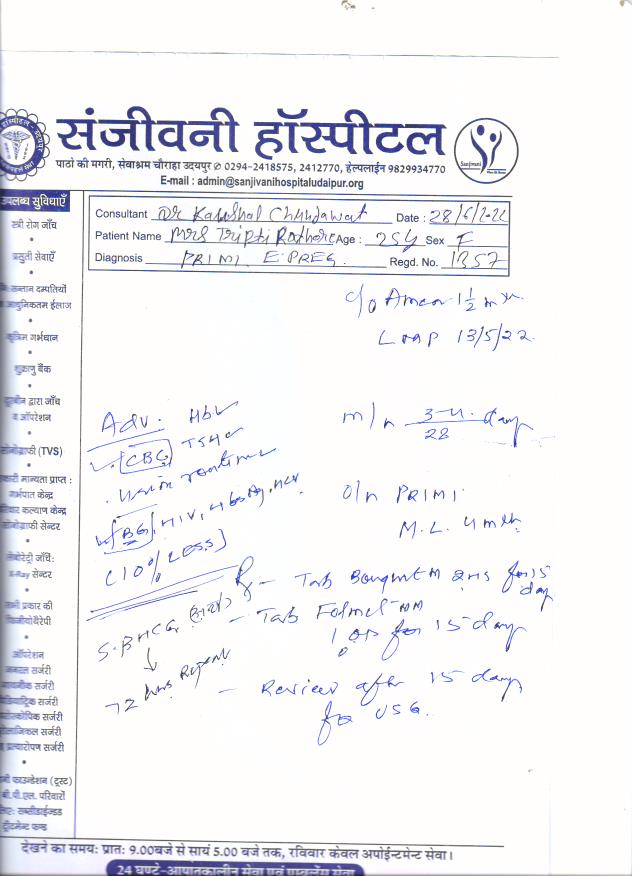 संजीवनी हॉस्पीटल
पाठो की मगरी, सेवाश्रम चौराहा उदयपुर 0294-2418575, 2412770, हेल्पलाईन 9829934770
E-mail : admin@sanjivanihospitaludaipur.org
Sanjivani
उपलब्ध सुविधाएँ
स्त्री रोग जाँच
प्रसुती सेवाएँ
सन्तान दम्पतियों
आधुनिकतम ईलाज
कृत्रिम गर्भधान
शुक्राणु बैंक
दूरबीन द्वारा जाँच
व ऑपरेशन
सोनोग्राफी (TVS)
सरकारी मान्यता प्राप्त :
गर्भपात केन्द्र
परिवार कल्याण केन्द्र
सोनोग्राफी सेन्टर
लेबोरेट्री जाँच:
X-Ray सेन्टर
सभी प्रकार की
फिजीयोथैरेपी
ऑपरेशन
जनरल सर्जरी
सर्जरी
सर्जरी
सर्जरी
सर्जरी
व प्रत्यारोपण सर्जरी
फाउन्डेशन (ट्रस्ट)
बी.पी.एल. परिवारों
लिए: सब्सीडाईज्ड
ट्रीटमेन्ट फण्ड
Consultant Dr Kaushal Chundawat Date : 28/6/2022
Patient Name Mrs Tripti Rathore Age : 25Y Sex F
Diagnosis PRIMI E PREG. Regd. No. 1357
C/o Amen 1 1/2 mth
LMP 13/5/22
M/H 3-4 days
28
O/H PRIMI
M.L. 4 mth
Adv. Hb
CBG TSH
Urine routine
BG, HIV, HbsAg, HCV
(10% Less)
S. BHCG
72 hrs Repeat
Rx - Tab 2 hs for 15
day
- Tab
1 OD for 15 days
- Review after 15 days
for USG.
देखने का समय: प्रात: 9.00बजे से सायं 5.00 बजे तक, रविवार केवल अपोईन्टमेन्ट सेवा।
24 घण्टे-आपातकालीन सेवा एवं एम्बुलेंस सेवा